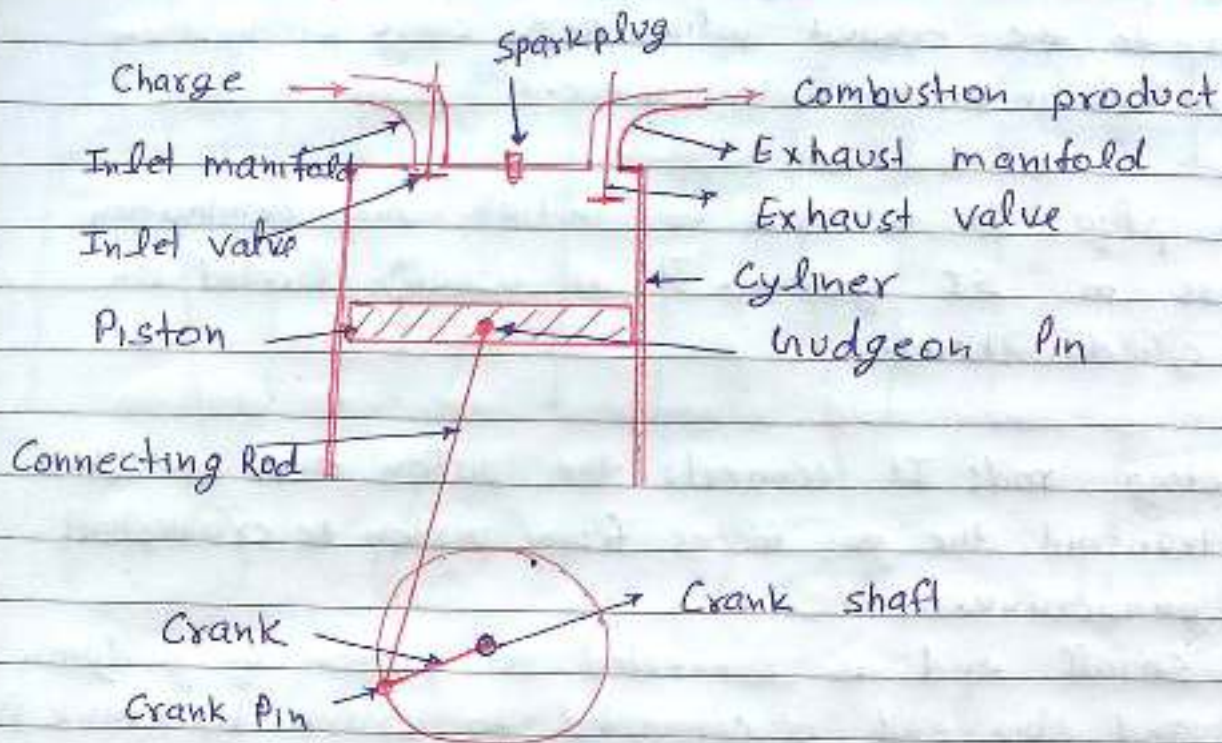 Sparkplug
Charge
Combustion product
Inlet manifold
Exhaust manifold
Inlet valve
Exhaust valve
Cyliner
Piston
Gudgeon Pin
Connecting Rod
Crank shaft
Crank
Crank Pin